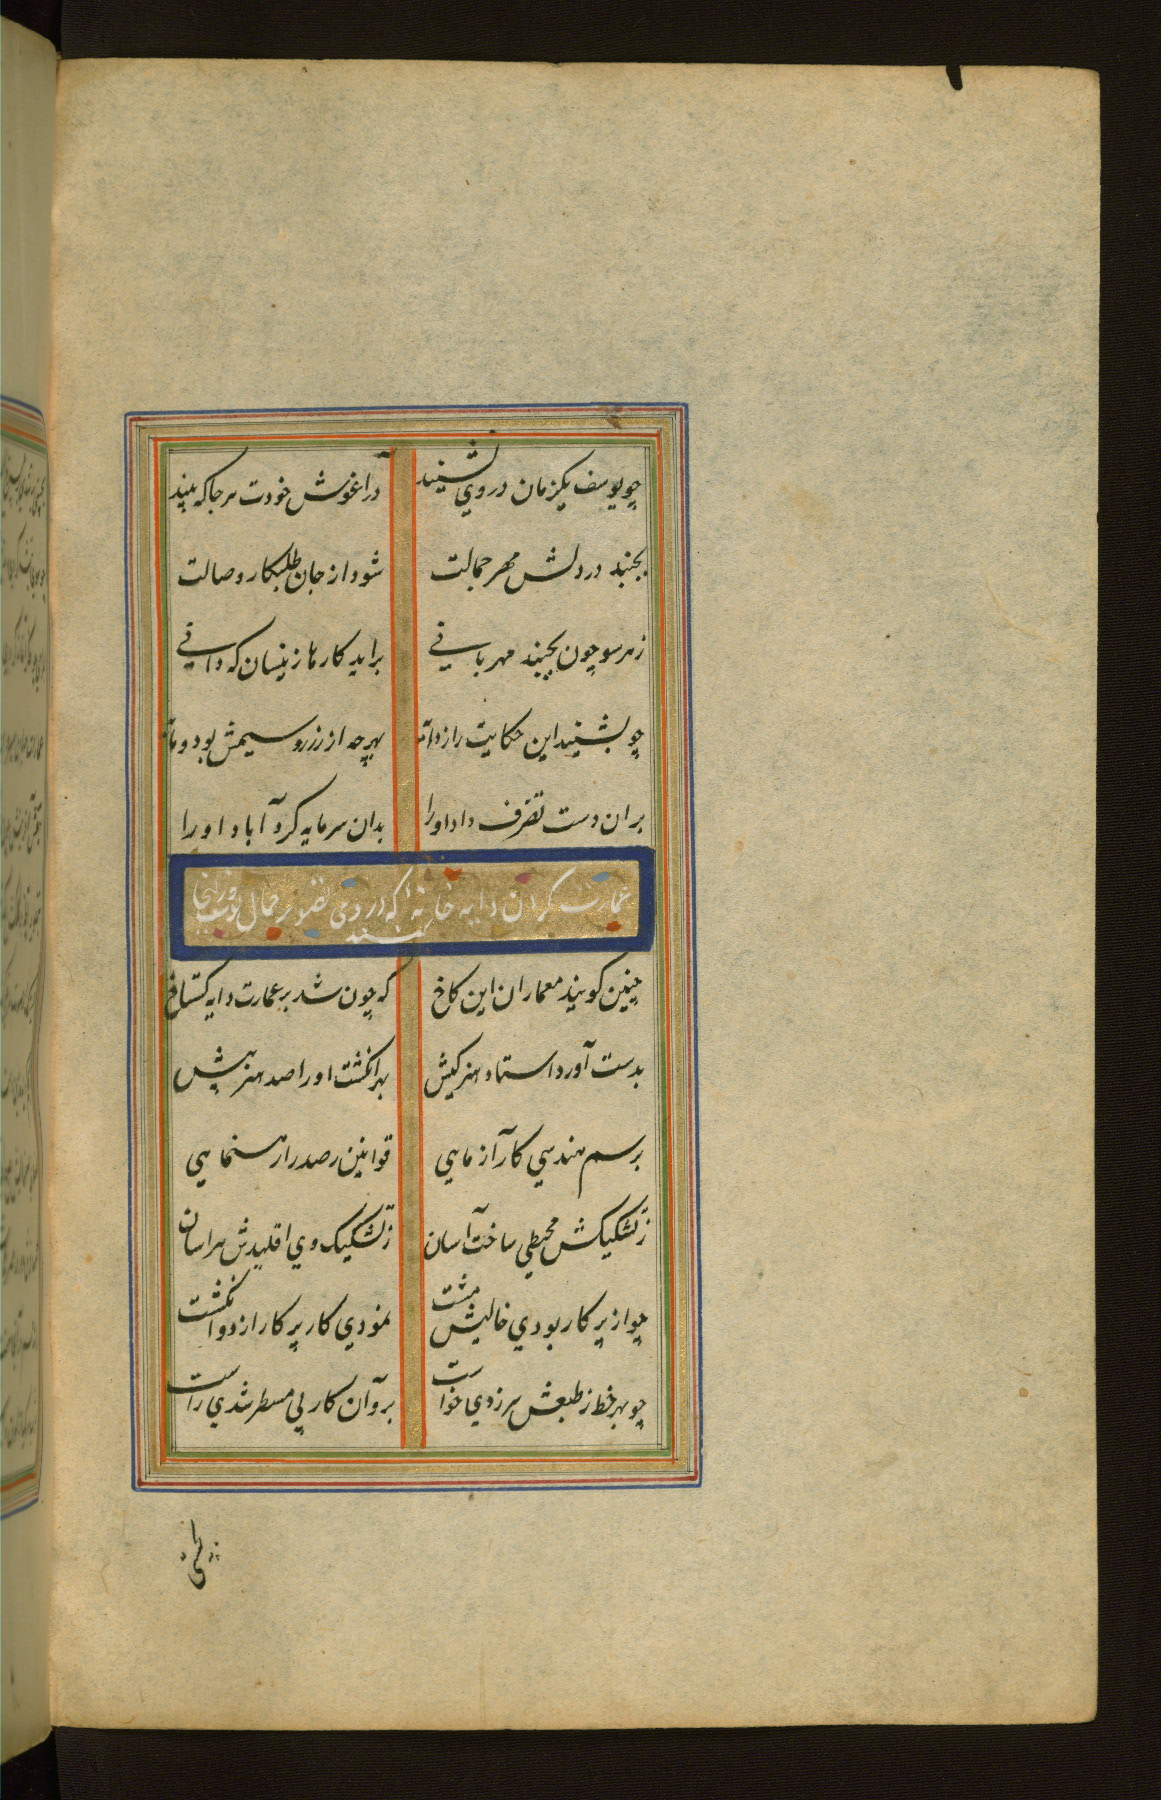 چو یوسف یکزمان دروي نشیند در آغوش خودت هر جا که بیند
بجنبد در دلش مهر جمالت شود از جان طلبکار وصالت
ز هر سو چون بجنبد مهربانی براید کارها زینسان که دانی
چو بشنید این حکایت را ز دایه بهرچه از زر و سیمش بود و مایه
بران دست تصرف داد اورا بدان سرمایه کرد آباد اورا
عمارت کردن دایه خانهٔ که در وی تصویر جمال یوسف و زلیخا
کشیدند
چنین کویند معماران این کاخ که چون شد بر عمارت دایه کستاخ
بدست آورد استاد هنرکیش بهر انکشت اورا صد هنر پیش
برسم هندسي کار آزمایي قوانین رصد را رهنمایي
ز تشکیکش محیطي ساخت آسان ز تشکیک وي اقلیدش هراسان
چو از پرکار بودي خالیش مشت نمودي کار پرکار از دو انکشت
چو بهر خط ز طبعش سر زدي خواست برو آن کار بي مسطر شدي راست